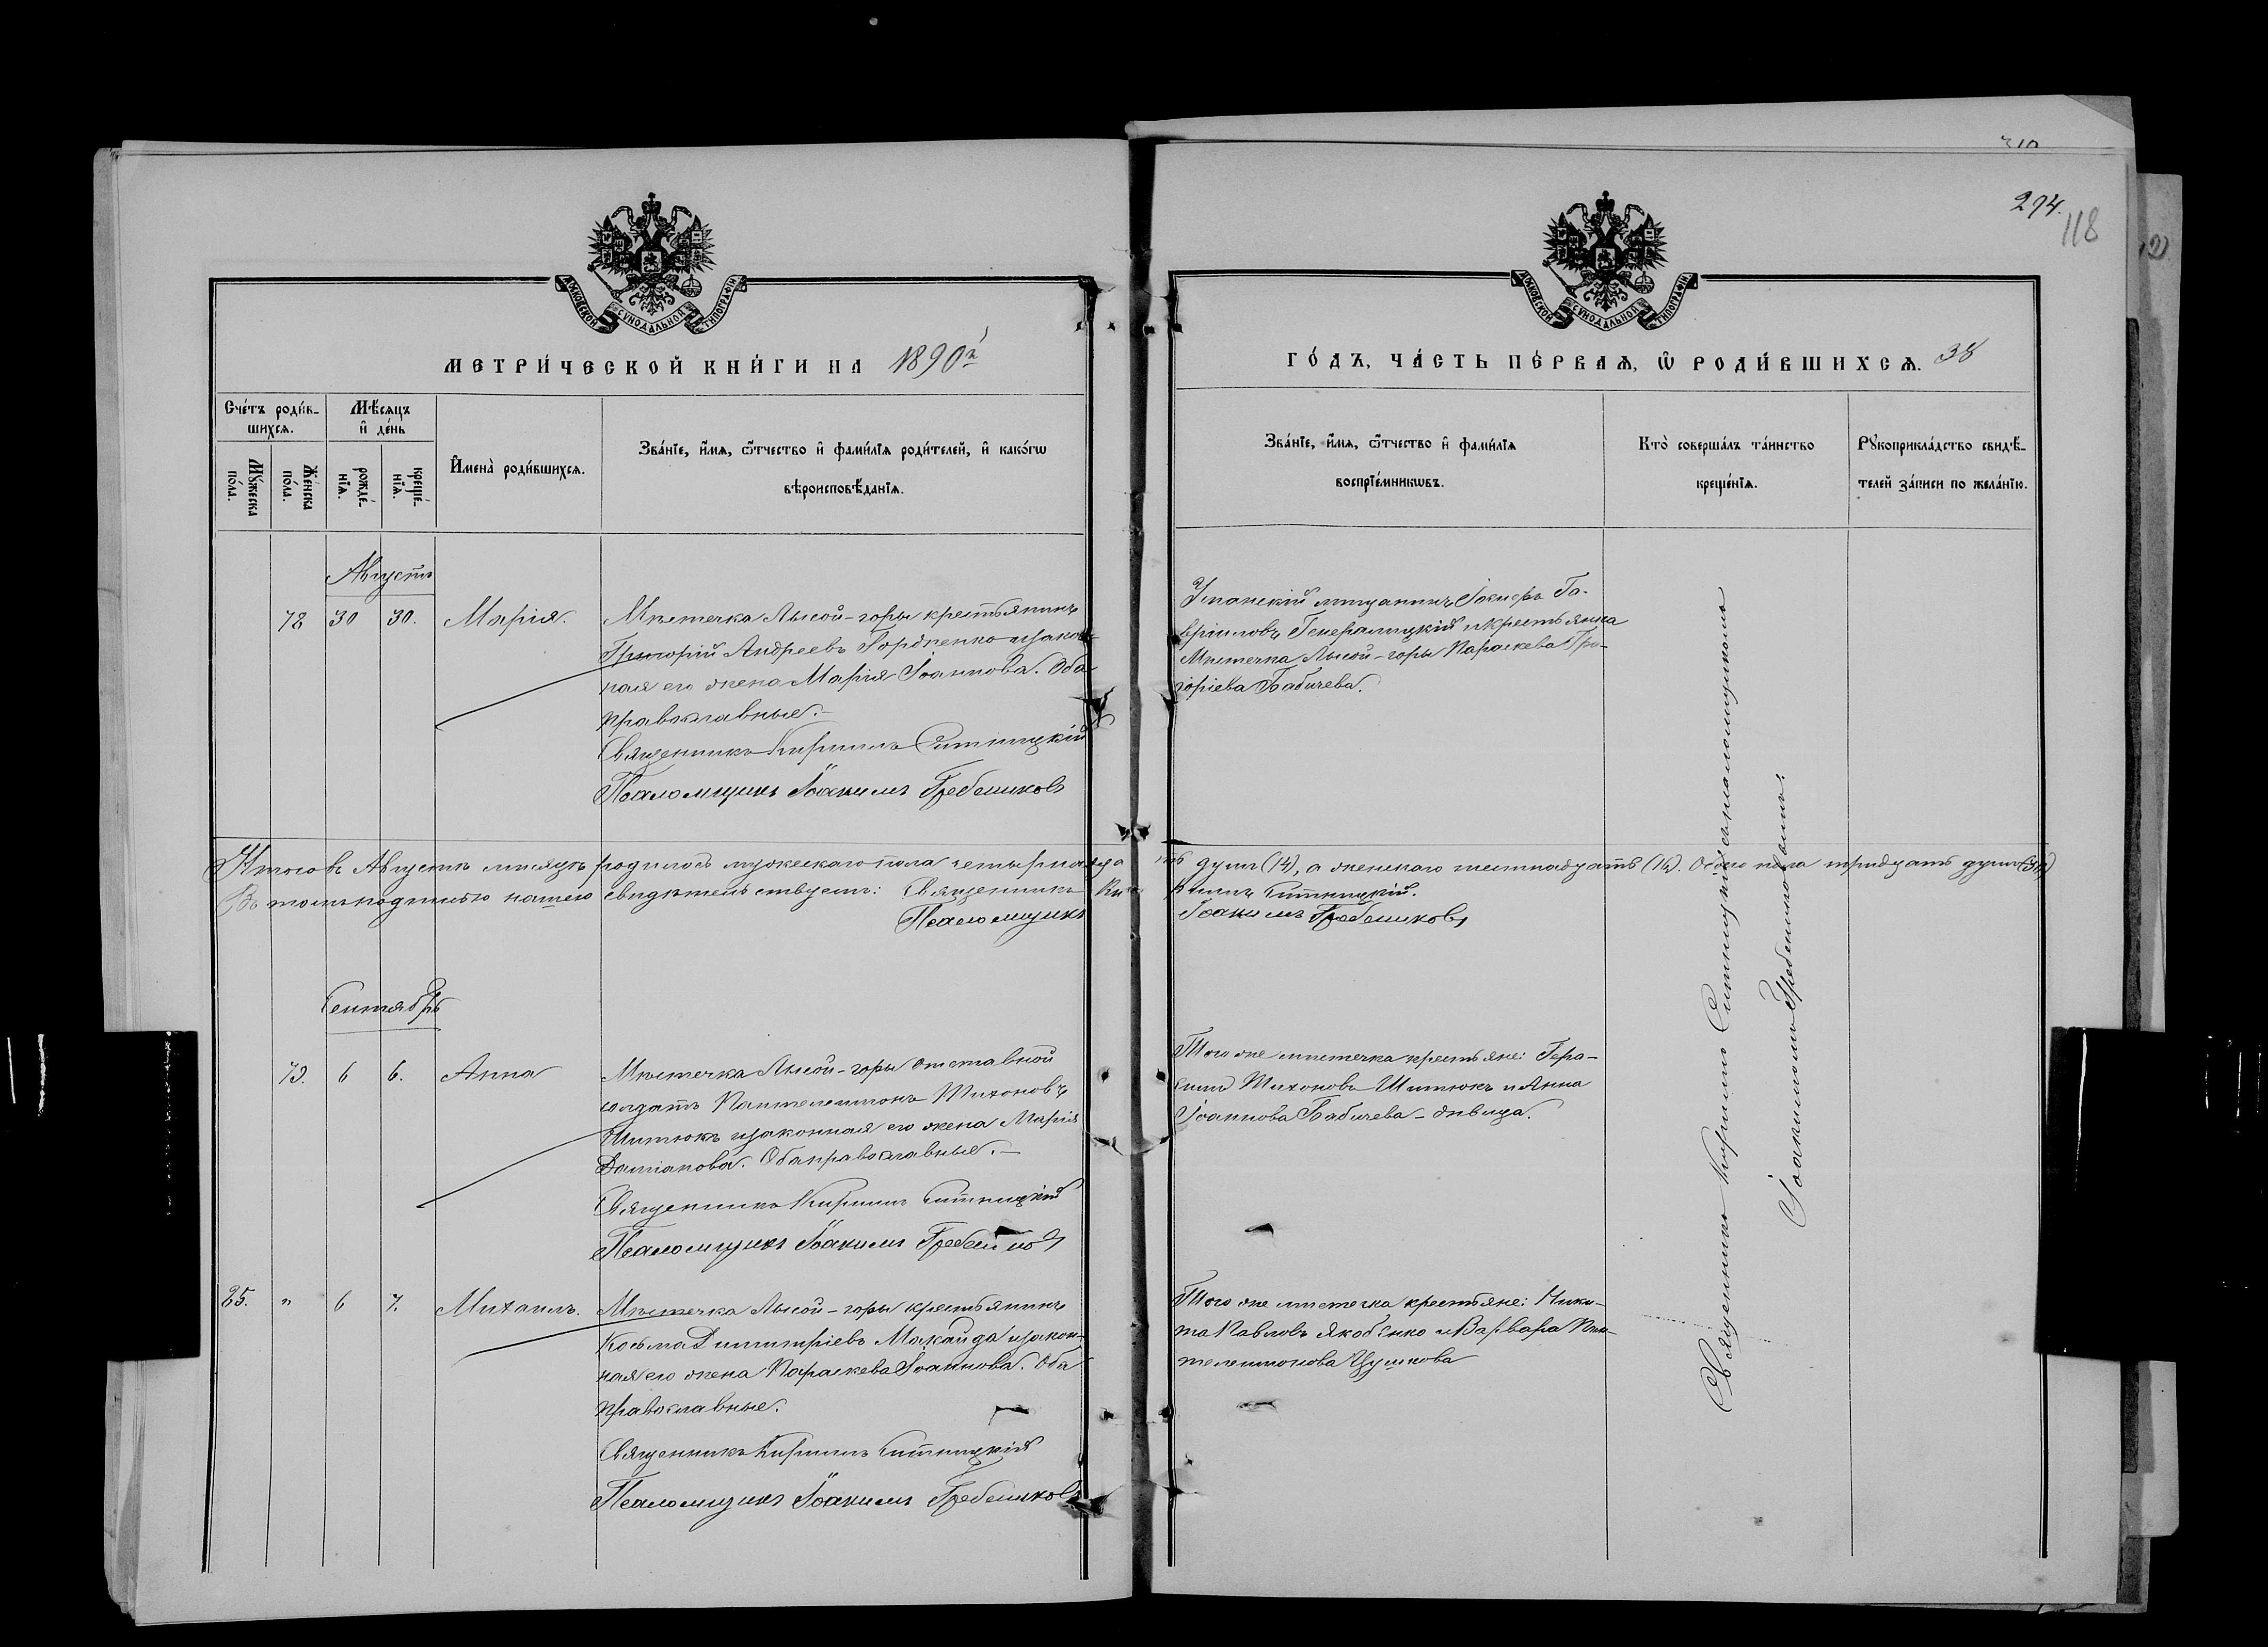 294.
118
МОСКОВСКОЙ СѴНОДАЛЬНОЙ ТИПОГРАФІИ
МОСКОВСКОЙ СѴНОДАЛЬНОЙ ТИПОГРАФІИ
МЕТРИ́ЧЕСКОЙ КНИ́ГИ НА 1890й
ГО́ДЪ, ЧА́СТЬ ПЕ́РВАѦ, Ѡ҆ РОДИ́ВШИХСѦ. 38
Сче́тъ роди́в-
шихсѧ.
Мѣ́сѧцъ
и҆ де́нь
Мꙋ́жеска
по́ла.
Же́нска
по́ла.
рожде́-
нїѧ.
креще́-
нїѧ.
И҆мена̀ роди́вшихсѧ.
Зва́нїе, и҆́мѧ, ѻ҆́тчество и҆ фами́лїѧ роди́телей, и҆ како́гѡ
вѣроисповѣ́данїѧ.
Зва́нїе, и҆́мѧ, ѻ҆́тчество и҆ фами́лїѧ
воспрїе́мникѡвъ.
Кто̀ соверша́лъ та́инство
креще́нїѧ.
Рꙋкоприкла́дство свидѣ́-
телей за́писи по жела́нїю.
Августъ
78 30 30. Марія.
Мѣстечка Лысой-горы крестьянинъ
Григорій Андреевъ Гордіенко и закон-
ная его жена Марія Іоаннова. Оба
православные.-
Священникъ Кириллъ Ситницкій
Псаломщикъ Іоакимъ Гребениковъ
Уманскій мѣщанинъ Іосифъ Га-
вріиловъ Генералицкій и крестьянка
Мѣстечка Лысой-горы Параскева Гри-
горіева Бабичева.
Итого въ Августѣ мѣсяцѣ родилось мужескаго пола четырнадцать душъ (14), а женскаго шестнадцать (16). Обоего пола тридцать душъ (30)
Въ томъ подписью нашею свидѣтельствуемъ: Священникъ Кириллъ Ситницкій.
Псаломщикъ Іоакимъ Гребениковъ
Сентябрь
79. 6 6. Анна
Мѣстечка Лысой-горы отставной
солдатъ Пантелеимонъ Тихоновъ
Шитюкъ и законная его жена Марія
Даміанова. Оба православные.-
Священникъ Кириллъ Ситницкій
Псаломщикъ Іоакимъ
Того же мѣстечка крестьяне: Гера-
симъ Тихоновъ Шитюкъ и Анна
Іоаннова Бабичева - дѣвица.
85. " 6 7. Михаилъ.
Мѣстечка Лысой-горы крестьянинъ
Косьма Димитріевъ Макайда и закон-
ная его жена Параскева Іоаннова. Оба
православные.
Священникъ Кириллъ Ситницкій
Псаломщикъ Іоакимъ Гребениковъ
Того же мѣстечка крестьяне: Ники-
та Павловъ Якобенко и Варвара Пан-
телеимонова Цушкова
Священникъ Кириллъ Ситницкій съ псаломщикомъ
Іоакимомъ Гребениковымъ.